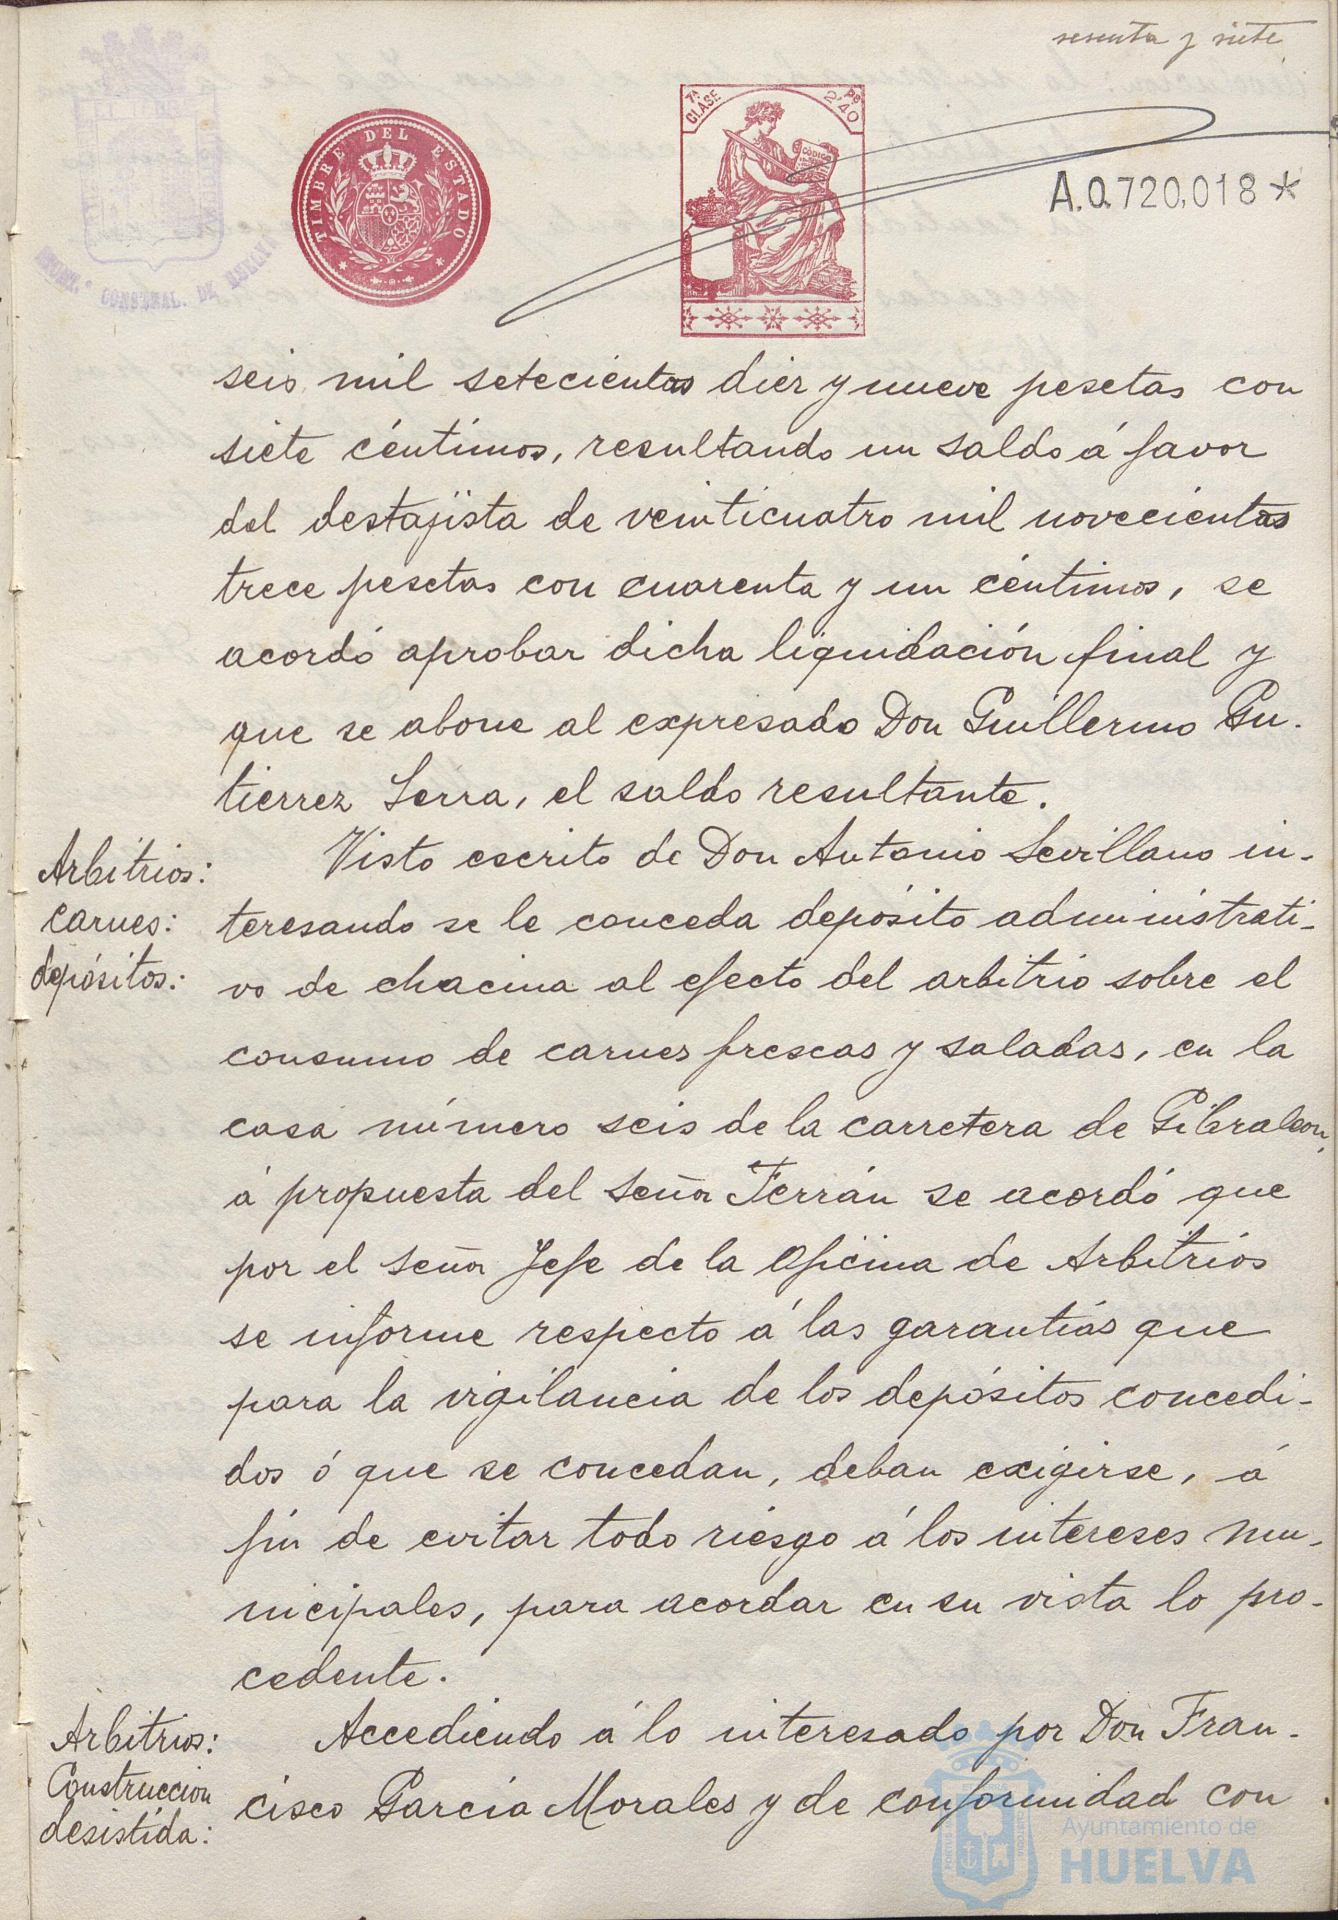 sesenta y siete
TIMBRE DEL ESTADO
7ª CLASE
2'40 PS
CODIGO
A.0.720,018*
CONSTNAL. DE HUELVA
seis mil setecientas diez y nueve pesetas con
siete céntimos, resultando un saldo á favor
del destajista de veinticuatro mil novecientas
trece pesetas con cuarenta y un céntimos, se
acordó aprobar dicha liquidación final y
que se abone al expresado Don Guillermo Gu-
tierrez Serra, el saldo resultante.
Arbitrios:
carnes:
depósitos:
Visto escrito de Don Antonio Sevillano in-
teresando se le conceda depósito administrati-
vo de chacina al efecto del arbitrio sobre el
consumo de carnes frescas y saladas, en la
casa número seis de la carretera de Gibraleon,
á propuesta del Señor Terrán se acordó que
por el Señor Jefe de la Oficina de Arbitrios
se informe respecto á las garantías que
para la vigilancia de los depósitos concedi-
dos ó que se concedan, deban exigirse, á
fin de evitar todo riesgo á los intereses mu-
nicipales, para acordar en su vista lo pro-
cedente.
Arbitrios:
Construccion
desistida:
Accediendo á lo interesado por Don Fran-
cisco García Morales y de conformidad con
Ayuntamiento de
HUELVA